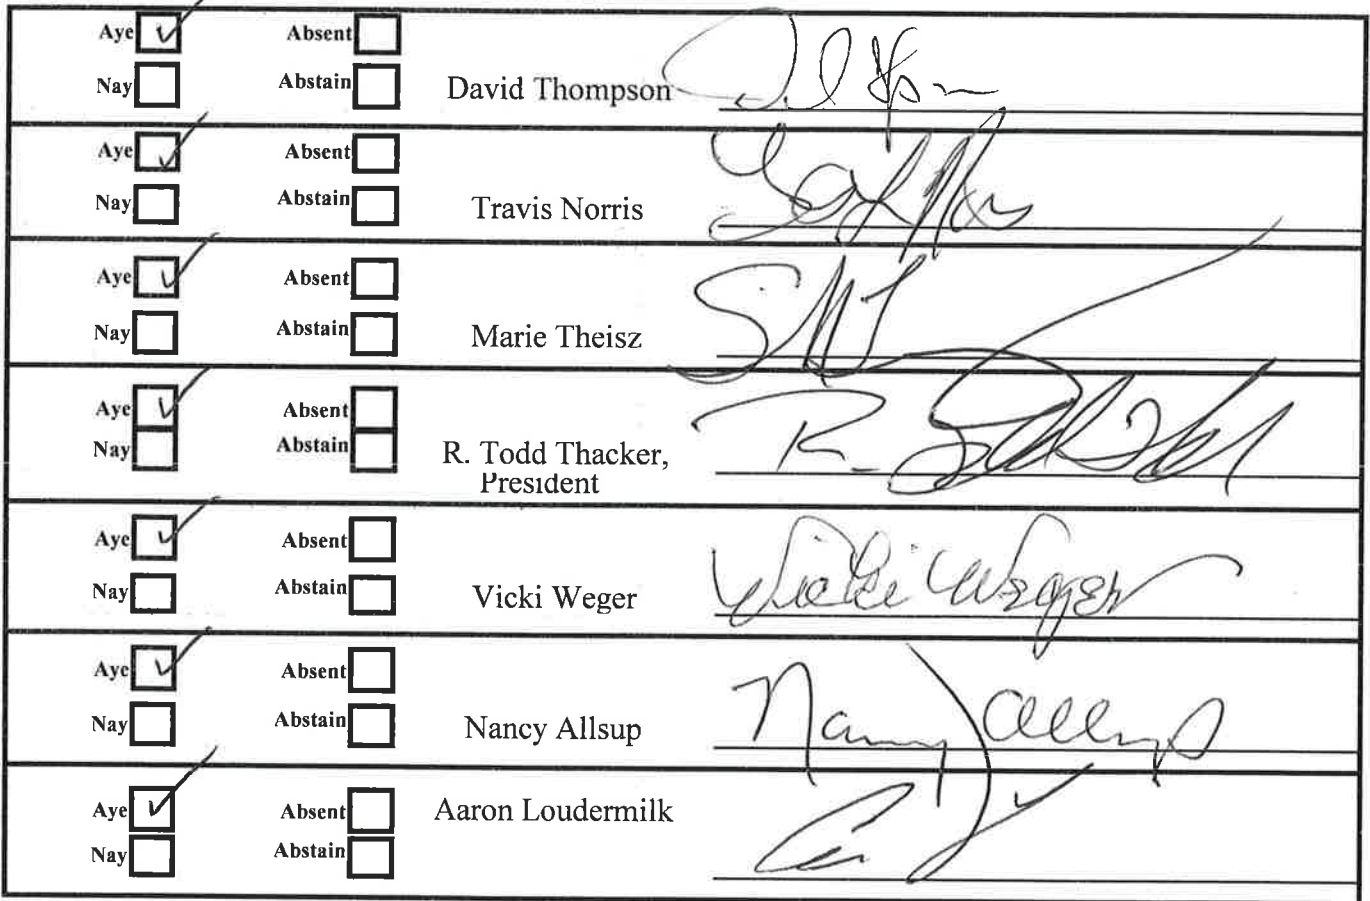 Aye ✓ Absent
Nay Abstain David Thompson
Aye ✓ Absent
Nay Abstain Travis Norris
Aye ✓ Absent
Nay Abstain Marie Theisz
Aye ✓ Absent
Nay Abstain R. Todd Thacker,
President
Aye ✓ Absent
Nay Abstain Vicki Weger Vicki Weger
Aye ✓ Absent
Nay Abstain Nancy Allsup Nancy Allsup
Aye ✓ Absent Aaron Loudermilk
Nay Abstain